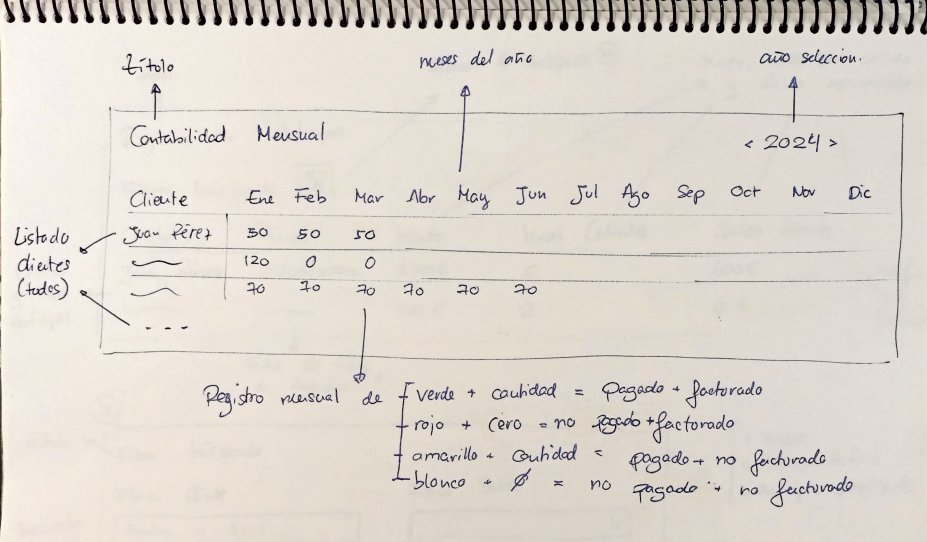 título meses del año año seleccion.
Contabilidad Mensual < 2024 >
Cliente Ene Feb Mar Abr May Jun Jul Ago Sep Oct Nov Dic
Juan Pérez 50 50 50
120 0 0
70 70 70 70 70 70
. . .
Listado
clientes
(todos)
Registro mensual de
verde + cantidad = pagado + facturado
rojo + cero = no pagado + facturado
amarillo + cantidad = pagado + no facturado
blanco + ∅ = no pagado + no facturado